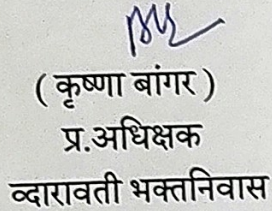 ( कृष्णा बांगर )
प्र.अधिक्षक
व्दारावती भक्तनिवास